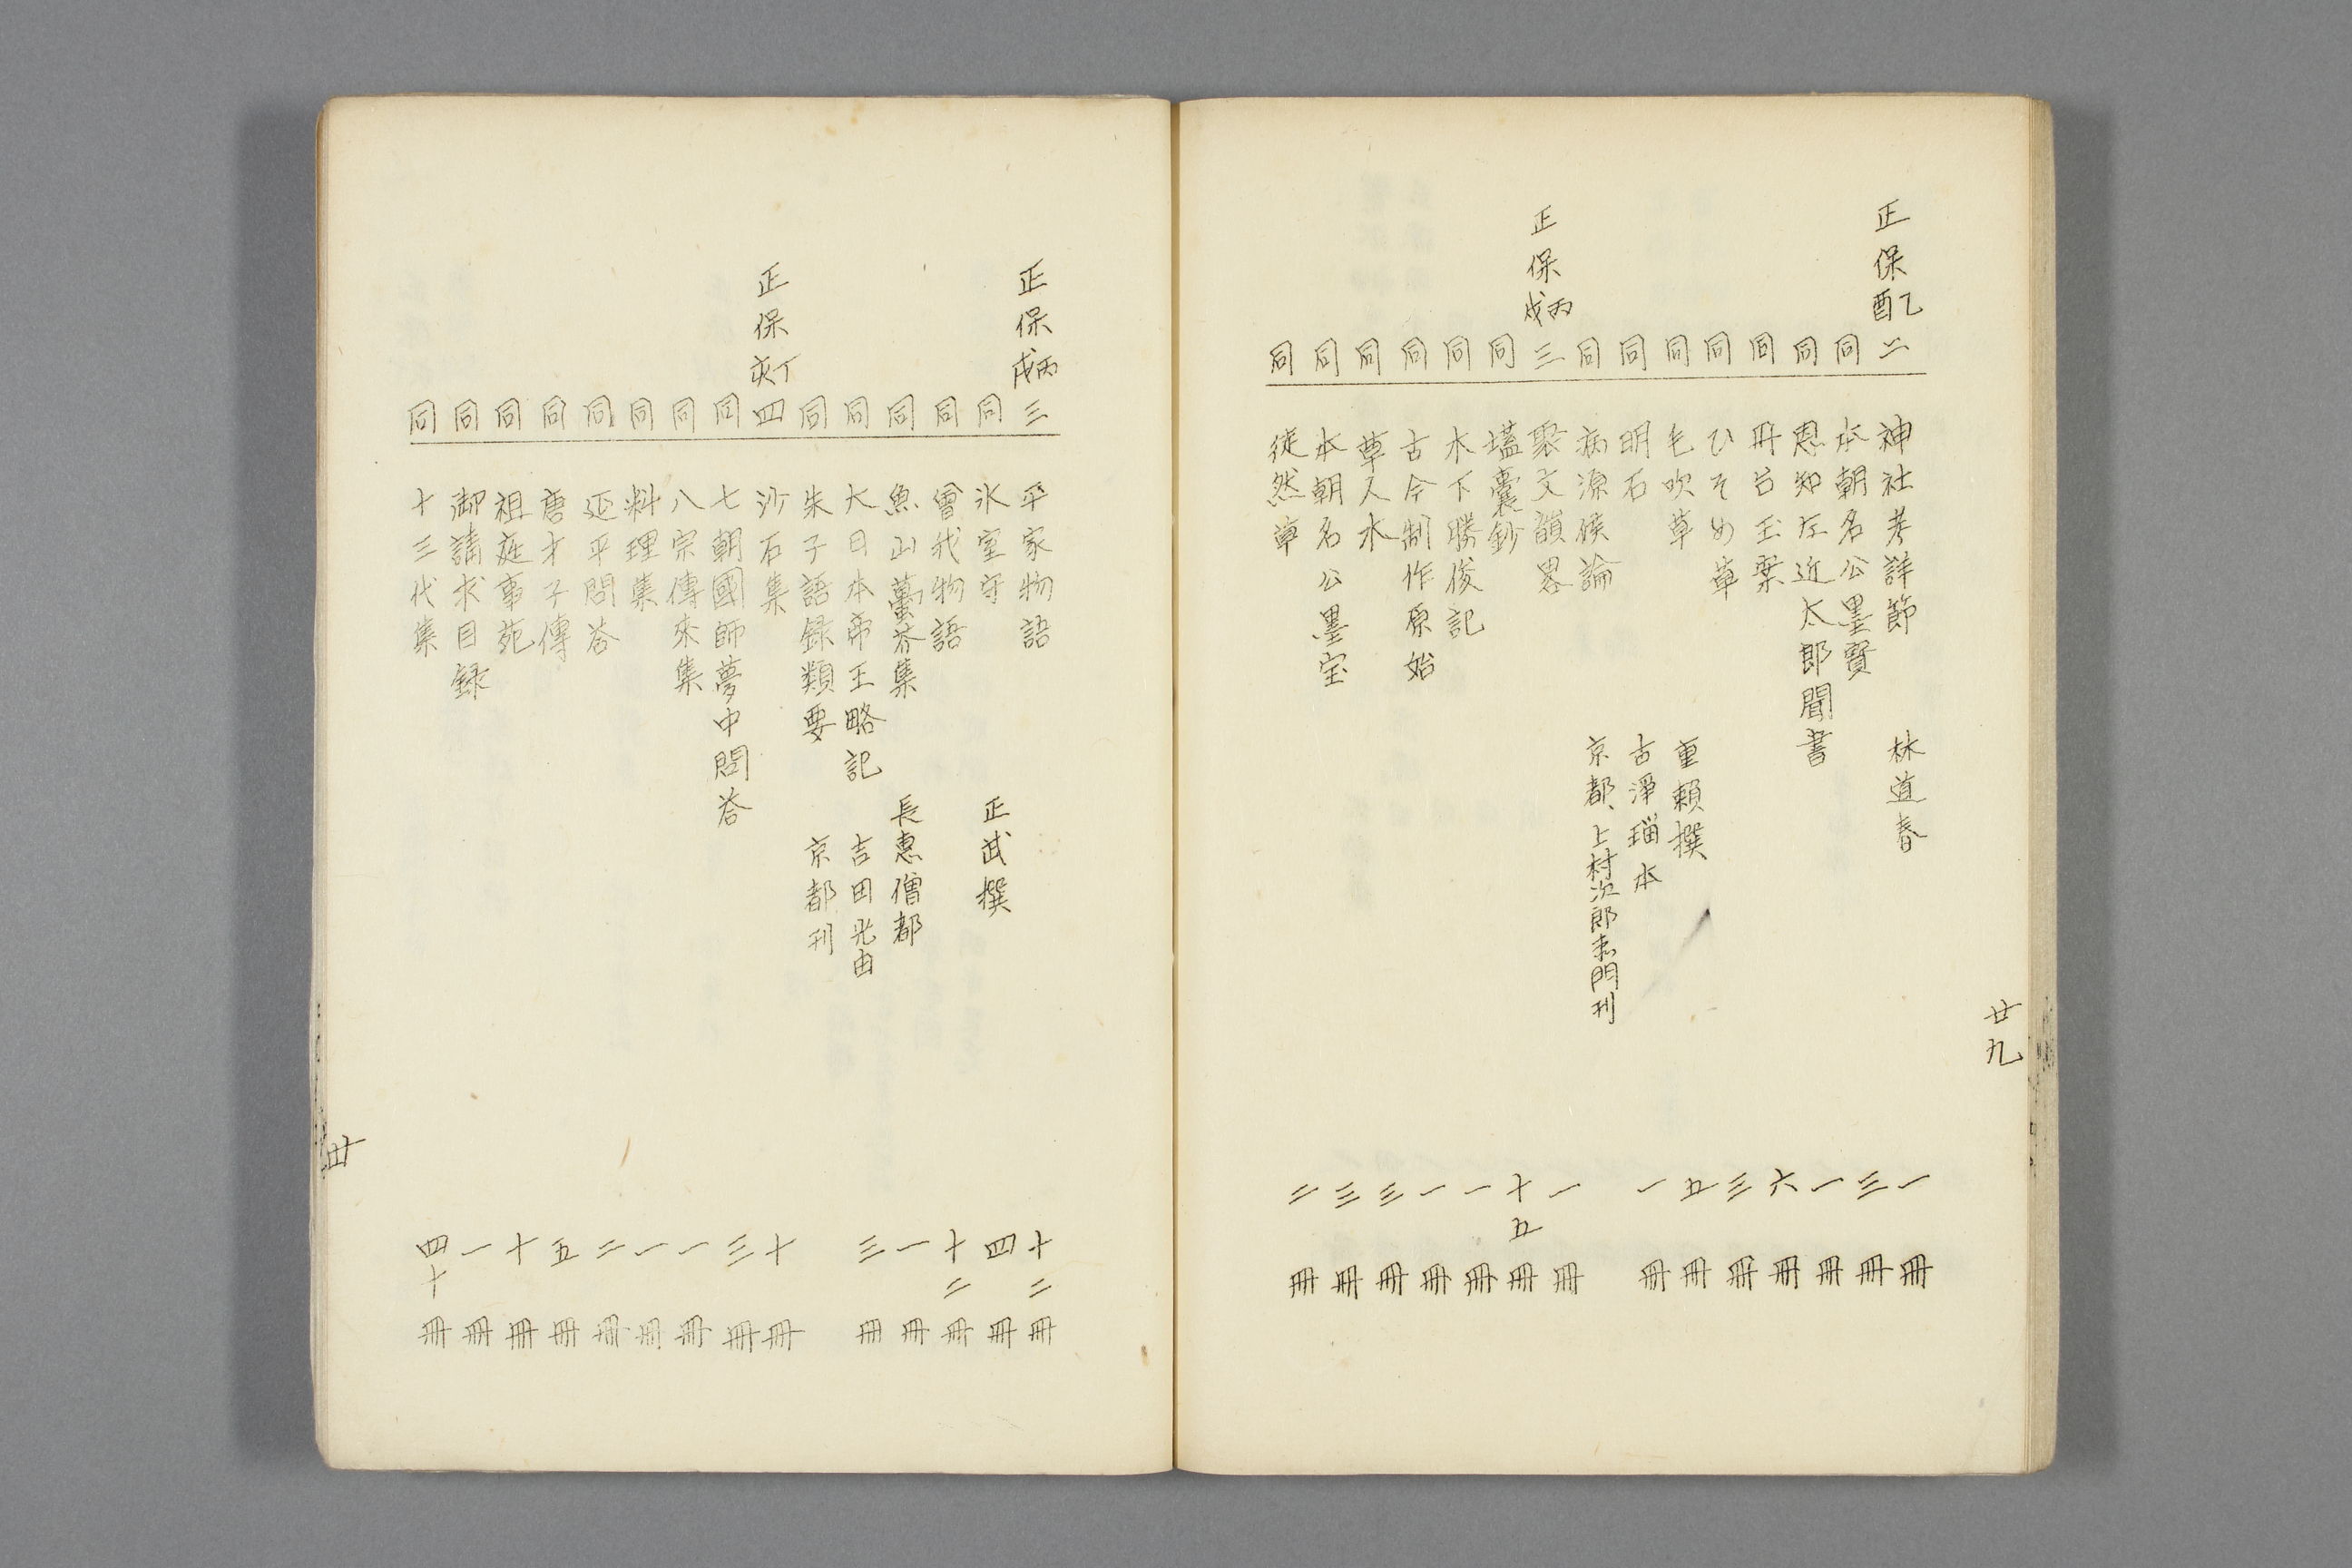 廿九
正保乙酉二 神社考詳節 林道春 一冊
同 本朝名公墨寶 三冊
同 恩知左近太郎聞書 一冊
同 冊呂玉葉 六冊
同 ひそめ草 三冊
同 毛吹草 重頼撰 五冊
同 明石 古淨瑠本 一冊
同 病源候論 京都、上村次郎右門刊
正保丙戌三 聚文韻畧 一冊
同 壒囊鈔 十五冊
同 木下勝俊記 一冊
同 古今制作原始 一冊
同 草人木 三冊
同 本朝名公墨宝 三冊
同 徒然草 二冊
正保丙戌三 平家物語 十二冊
同 氷室守 正武撰 四冊
同 曾我物語 十二冊
同 魚山蠆芥集 長惠僧都 一冊
同 大日本帝王略記 吉田光由 三冊
同 朱子語録類要 京都刊
正保丁亥四 沙石集 十冊
同 七朝國師夢中問答 三冊
同 八宗傳來集 一冊
同 料理集 一冊
同 延平問答 二冊
同 唐才子傳 五冊
同 祖庭事苑 十冊
同 御請求目録 一冊
同 十三代集 四十冊
卅